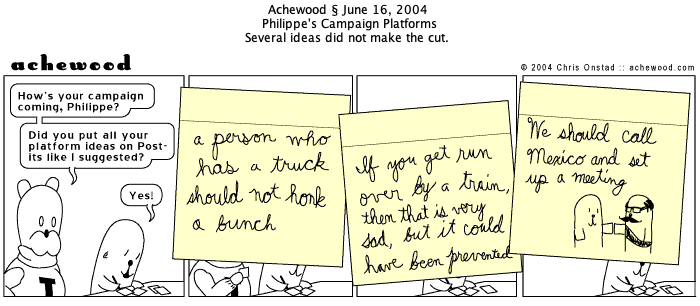 Achewood § June 16, 2004
Philippe's Campaign Platforms
Several ideas did not make the cut.
achewood
© 2004 Chris Onstad :: achewood.com
How's your campaign
coming, Philippe?
Did you put all your
platform ideas on Post-
its like I suggested?
Yes!
T
a person who
has a truck
should not honk
a bunch
If you get run
over by a train,
then that is very
sad, but it could
have been prevented
We should call
Mexico and set
up a meeting